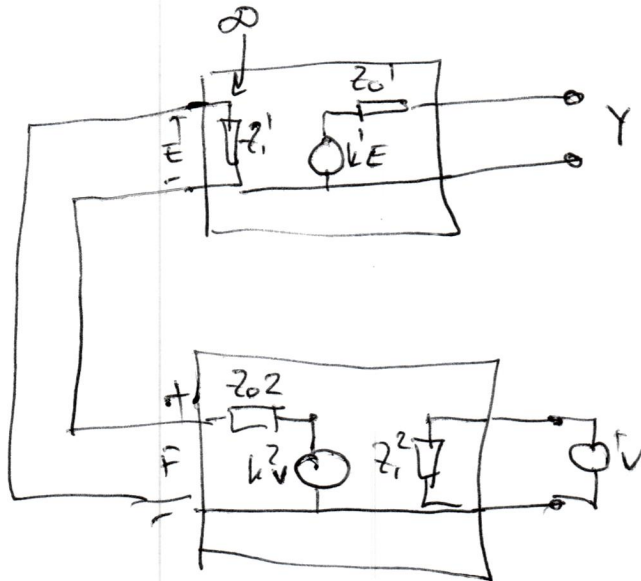 ∞
Zo¹
+
E
Zi¹
k¹E
Y
-
+
Zo2
F
k²v
Zi²
v
-